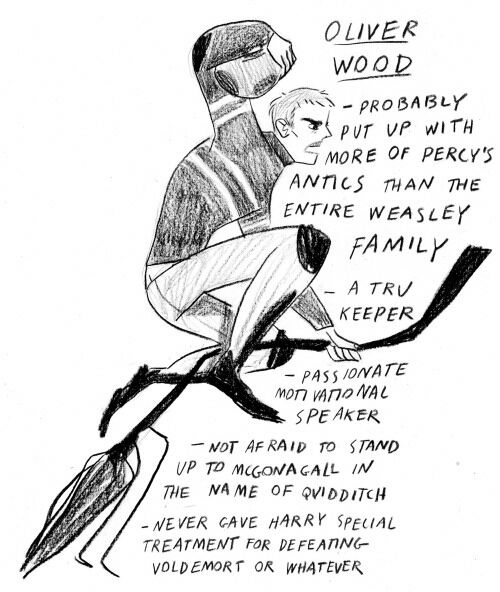 OLIVER
WOOD
- PROBABLY
PUT UP WITH
MORE OF PERCY'S
ANTICS THAN THE
ENTIRE WEASLEY
FAMILY
- A TRU
KEEPER
- PASSIONATE
MOTIVATIONAL
SPEAKER
- NOT AFRAID TO STAND
UP TO MCGONAGALL IN
THE NAME OF QUIDDITCH
- NEVER GAVE HARRY SPECIAL
TREATMENT FOR DEFEATING
VOLDEMORT OR WHATEVER